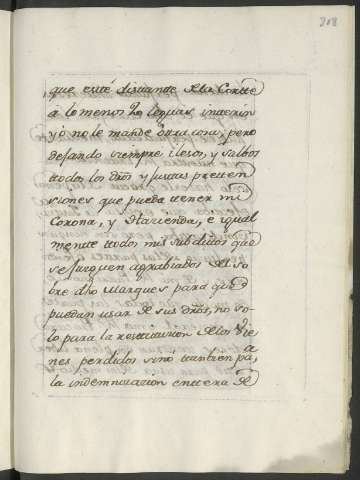 208
que esté distante de la Corte
a lo menos 20 leguas, interin
yo no le mande otra cosa, pero
dejando siempre ilesos, y salbos
todos los dros y justas preten
siones que pueda tener mi
Corona, y Hacienda, e igual
mente todos mis subditos que
se juzguen agrabiados del so
bre dho Marques para que
puedan usar de sus dros, no so
lo para la restitucion de los Vie
nes perdidos sinó tambien pa
ra
la indemnizacion entera de